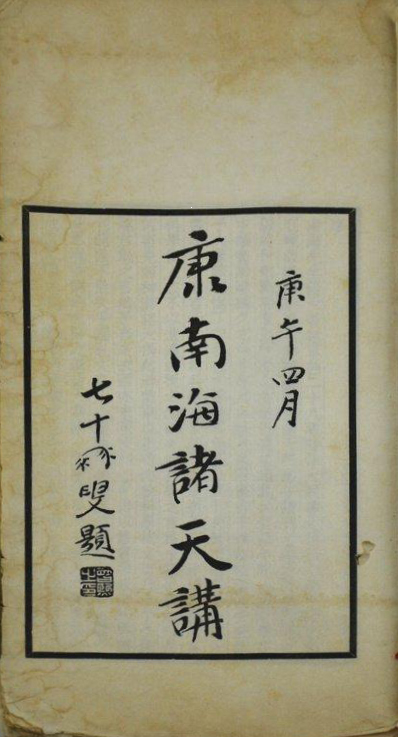 庚午四月
康南海諸天講
七十叟題